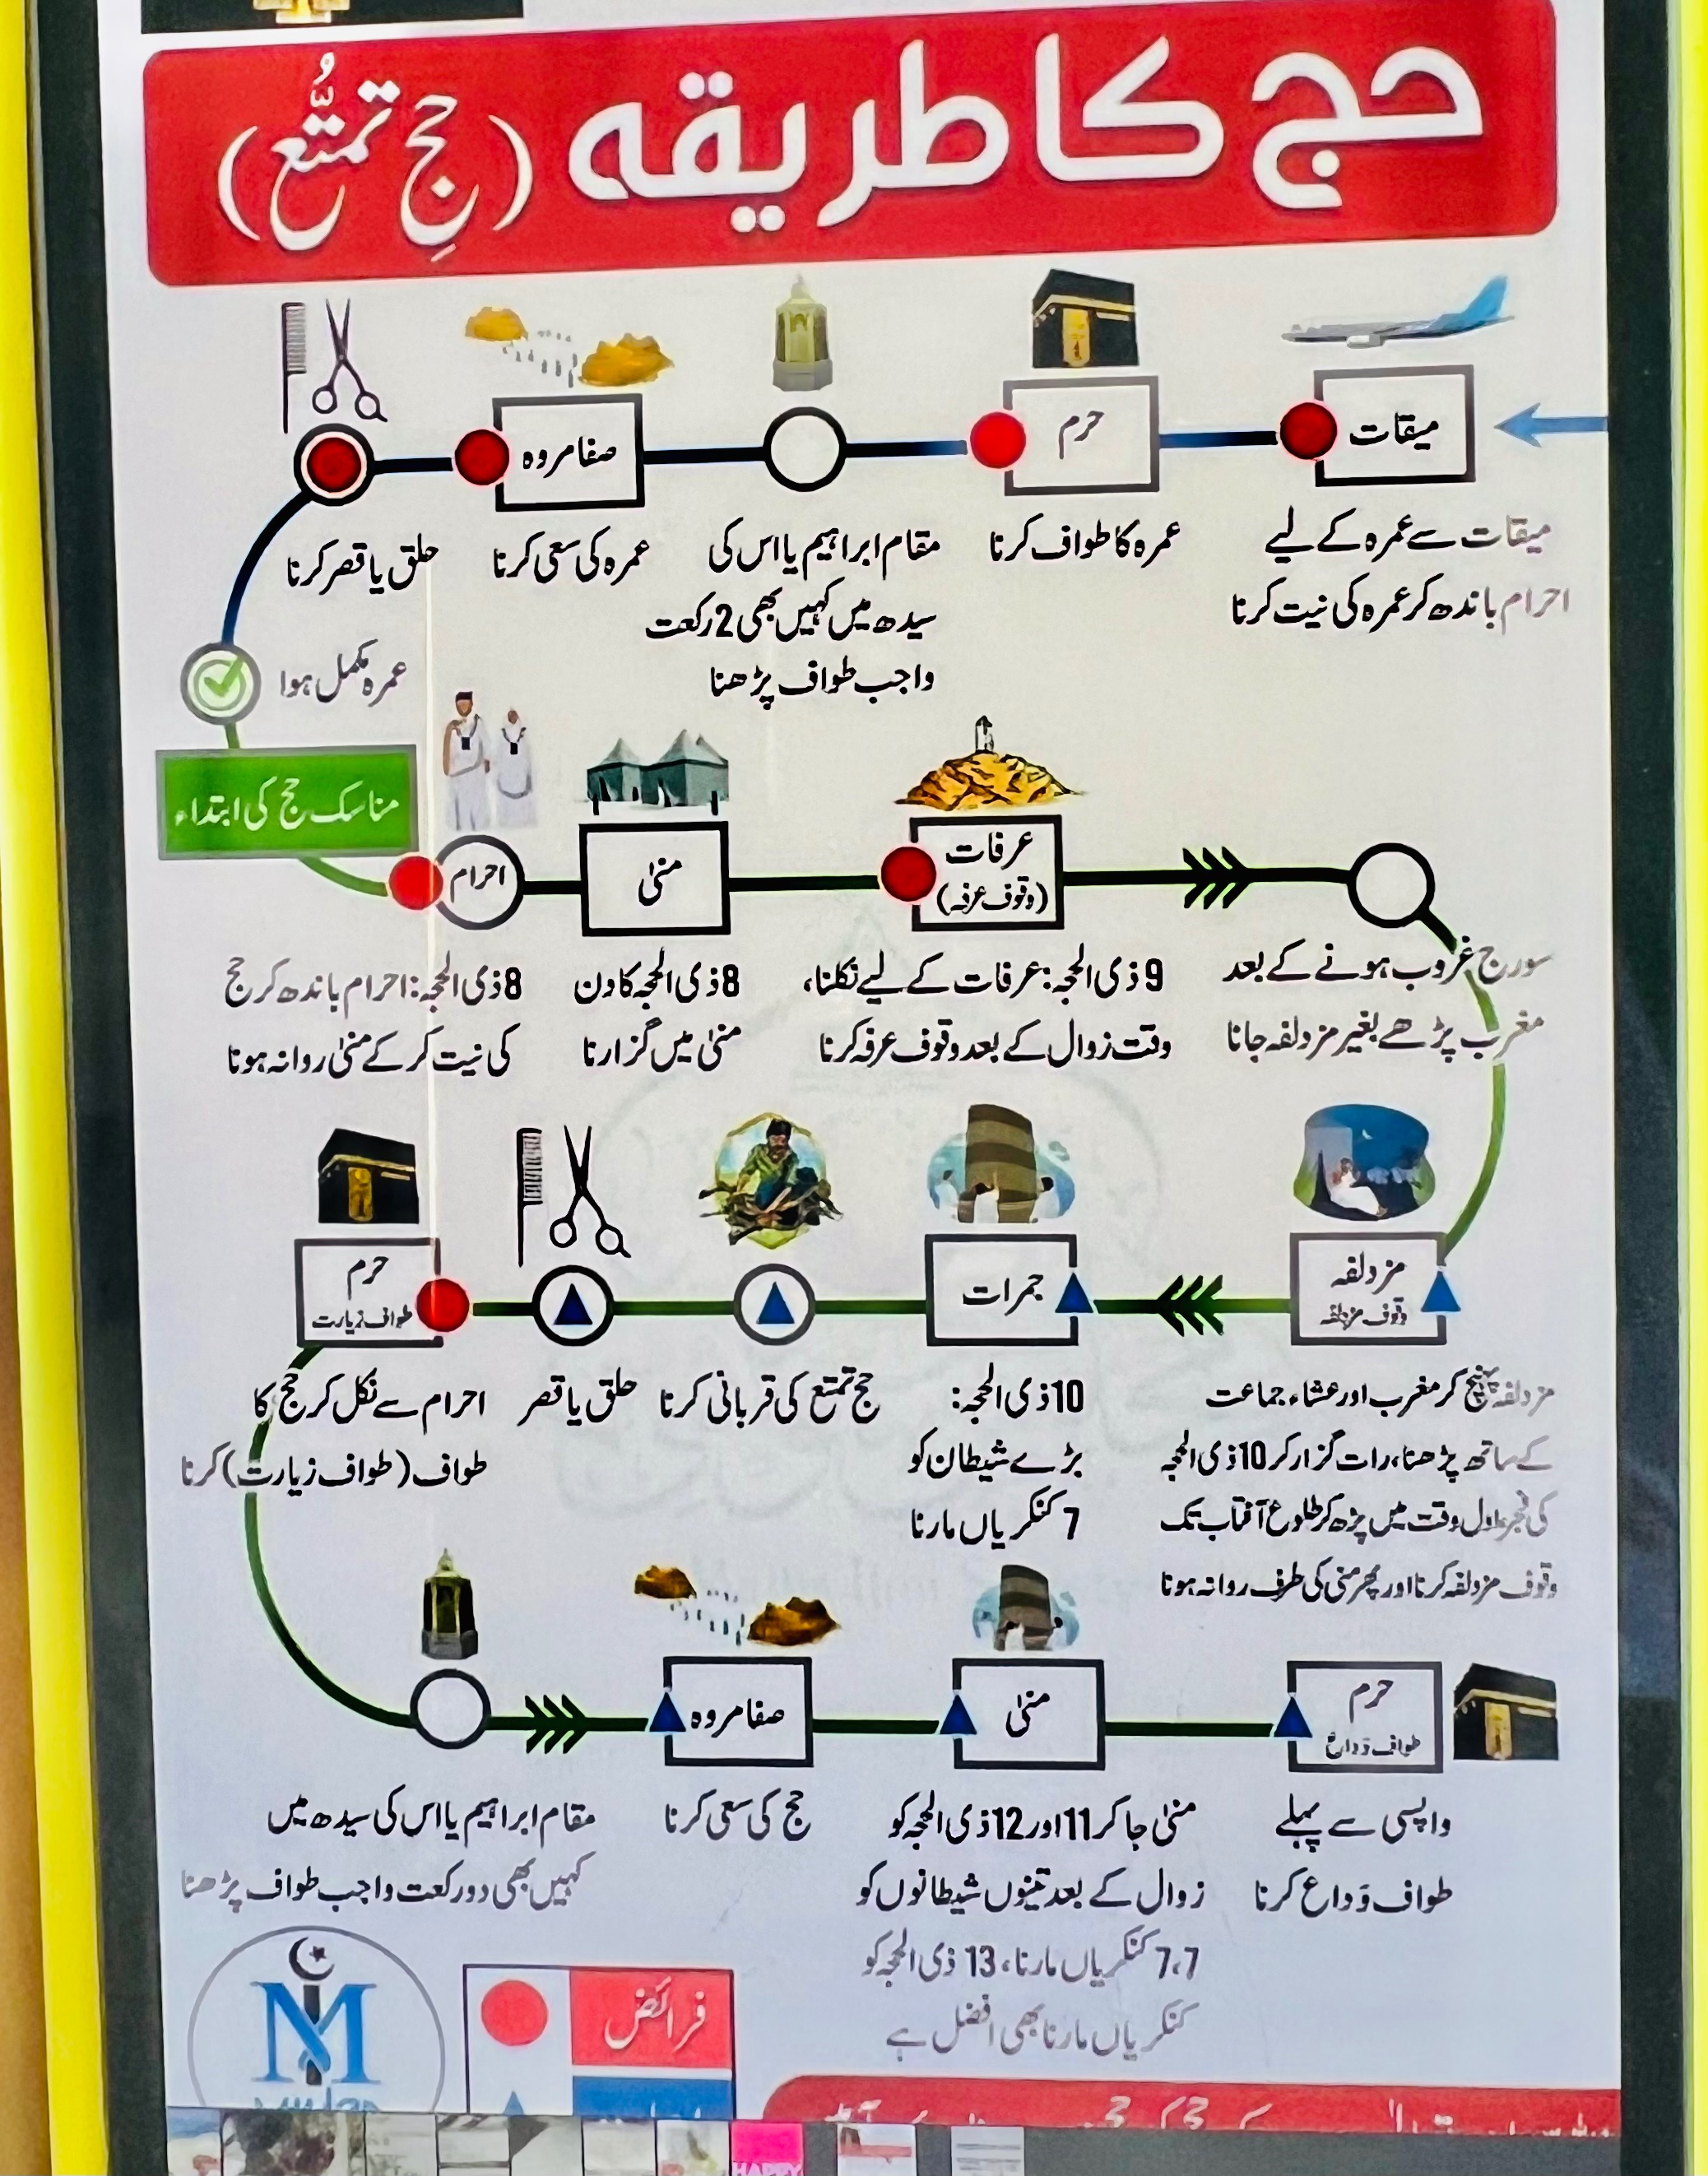 حج کا طریقہ (حجِ تمتُّع)
میقات
حرم
صفا مروہ
میقات سے عمرہ کے لیے
احرام باندھ کر عمرہ کی نیت کرنا
عمرہ کا طواف کرنا
مقام ابراہیم یا اس کی
سیدھ میں کہیں بھی 2 رکعت
واجب طواف پڑھنا
عمرہ کی سعی کرنا
حلق یا قصر کرنا
عمرہ مکمل ہوا
مناسک حج کی ابتداء
احرام
منیٰ
عرفات
(وقوف عرفہ)
8 ذی الحجہ: احرام باندھ کر حج
کی نیت کر کے منیٰ روانہ ہونا
8 ذی الحجہ کا دن
منیٰ میں گزارنا
9 ذی الحجہ: عرفات کے لیے نکلنا،
وقت زوال کے بعد وقوف عرفہ کرنا
سورج غروب ہونے کے بعد
مغرب پڑھے بغیر مزدلفہ جانا
مزدلفہ
وقوف مزدلفہ
جمرات
حرم
طواف زیارت
مزدلفہ پہنچ کر مغرب اور عشاء جماعت
کے ساتھ پڑھنا، رات گزار کر 10 ذی الحجہ
کی فجر اول وقت میں پڑھ کر طلوع آفتاب تک
وقوف مزدلفہ کرنا اور پھر منی کی طرف روانہ ہونا
10 ذی الحجہ:
بڑے شیطان کو
7 کنکریاں مارنا
حج تمتع کی قربانی کرنا
حلق یا قصر
احرام سے نکل کر حج کا
طواف (طواف زیارت) کرنا
صفا مروہ
منیٰ
حرم
طواف وَداع
مقام ابراہیم یا اس کی سیدھ میں
کہیں بھی دو رکعت واجب طواف پڑھنا
حج کی سعی کرنا
منیٰ جا کر 11 اور 12 ذی الحجہ کو
زوال کے بعد تینوں شیطانوں کو
7،7 کنکریاں مارنا، 13 ذی الحجہ کو
کنکریاں مارنا بھی افضل ہے
واپسی سے پہلے
طواف وَداع کرنا
فرائض
HAPPY